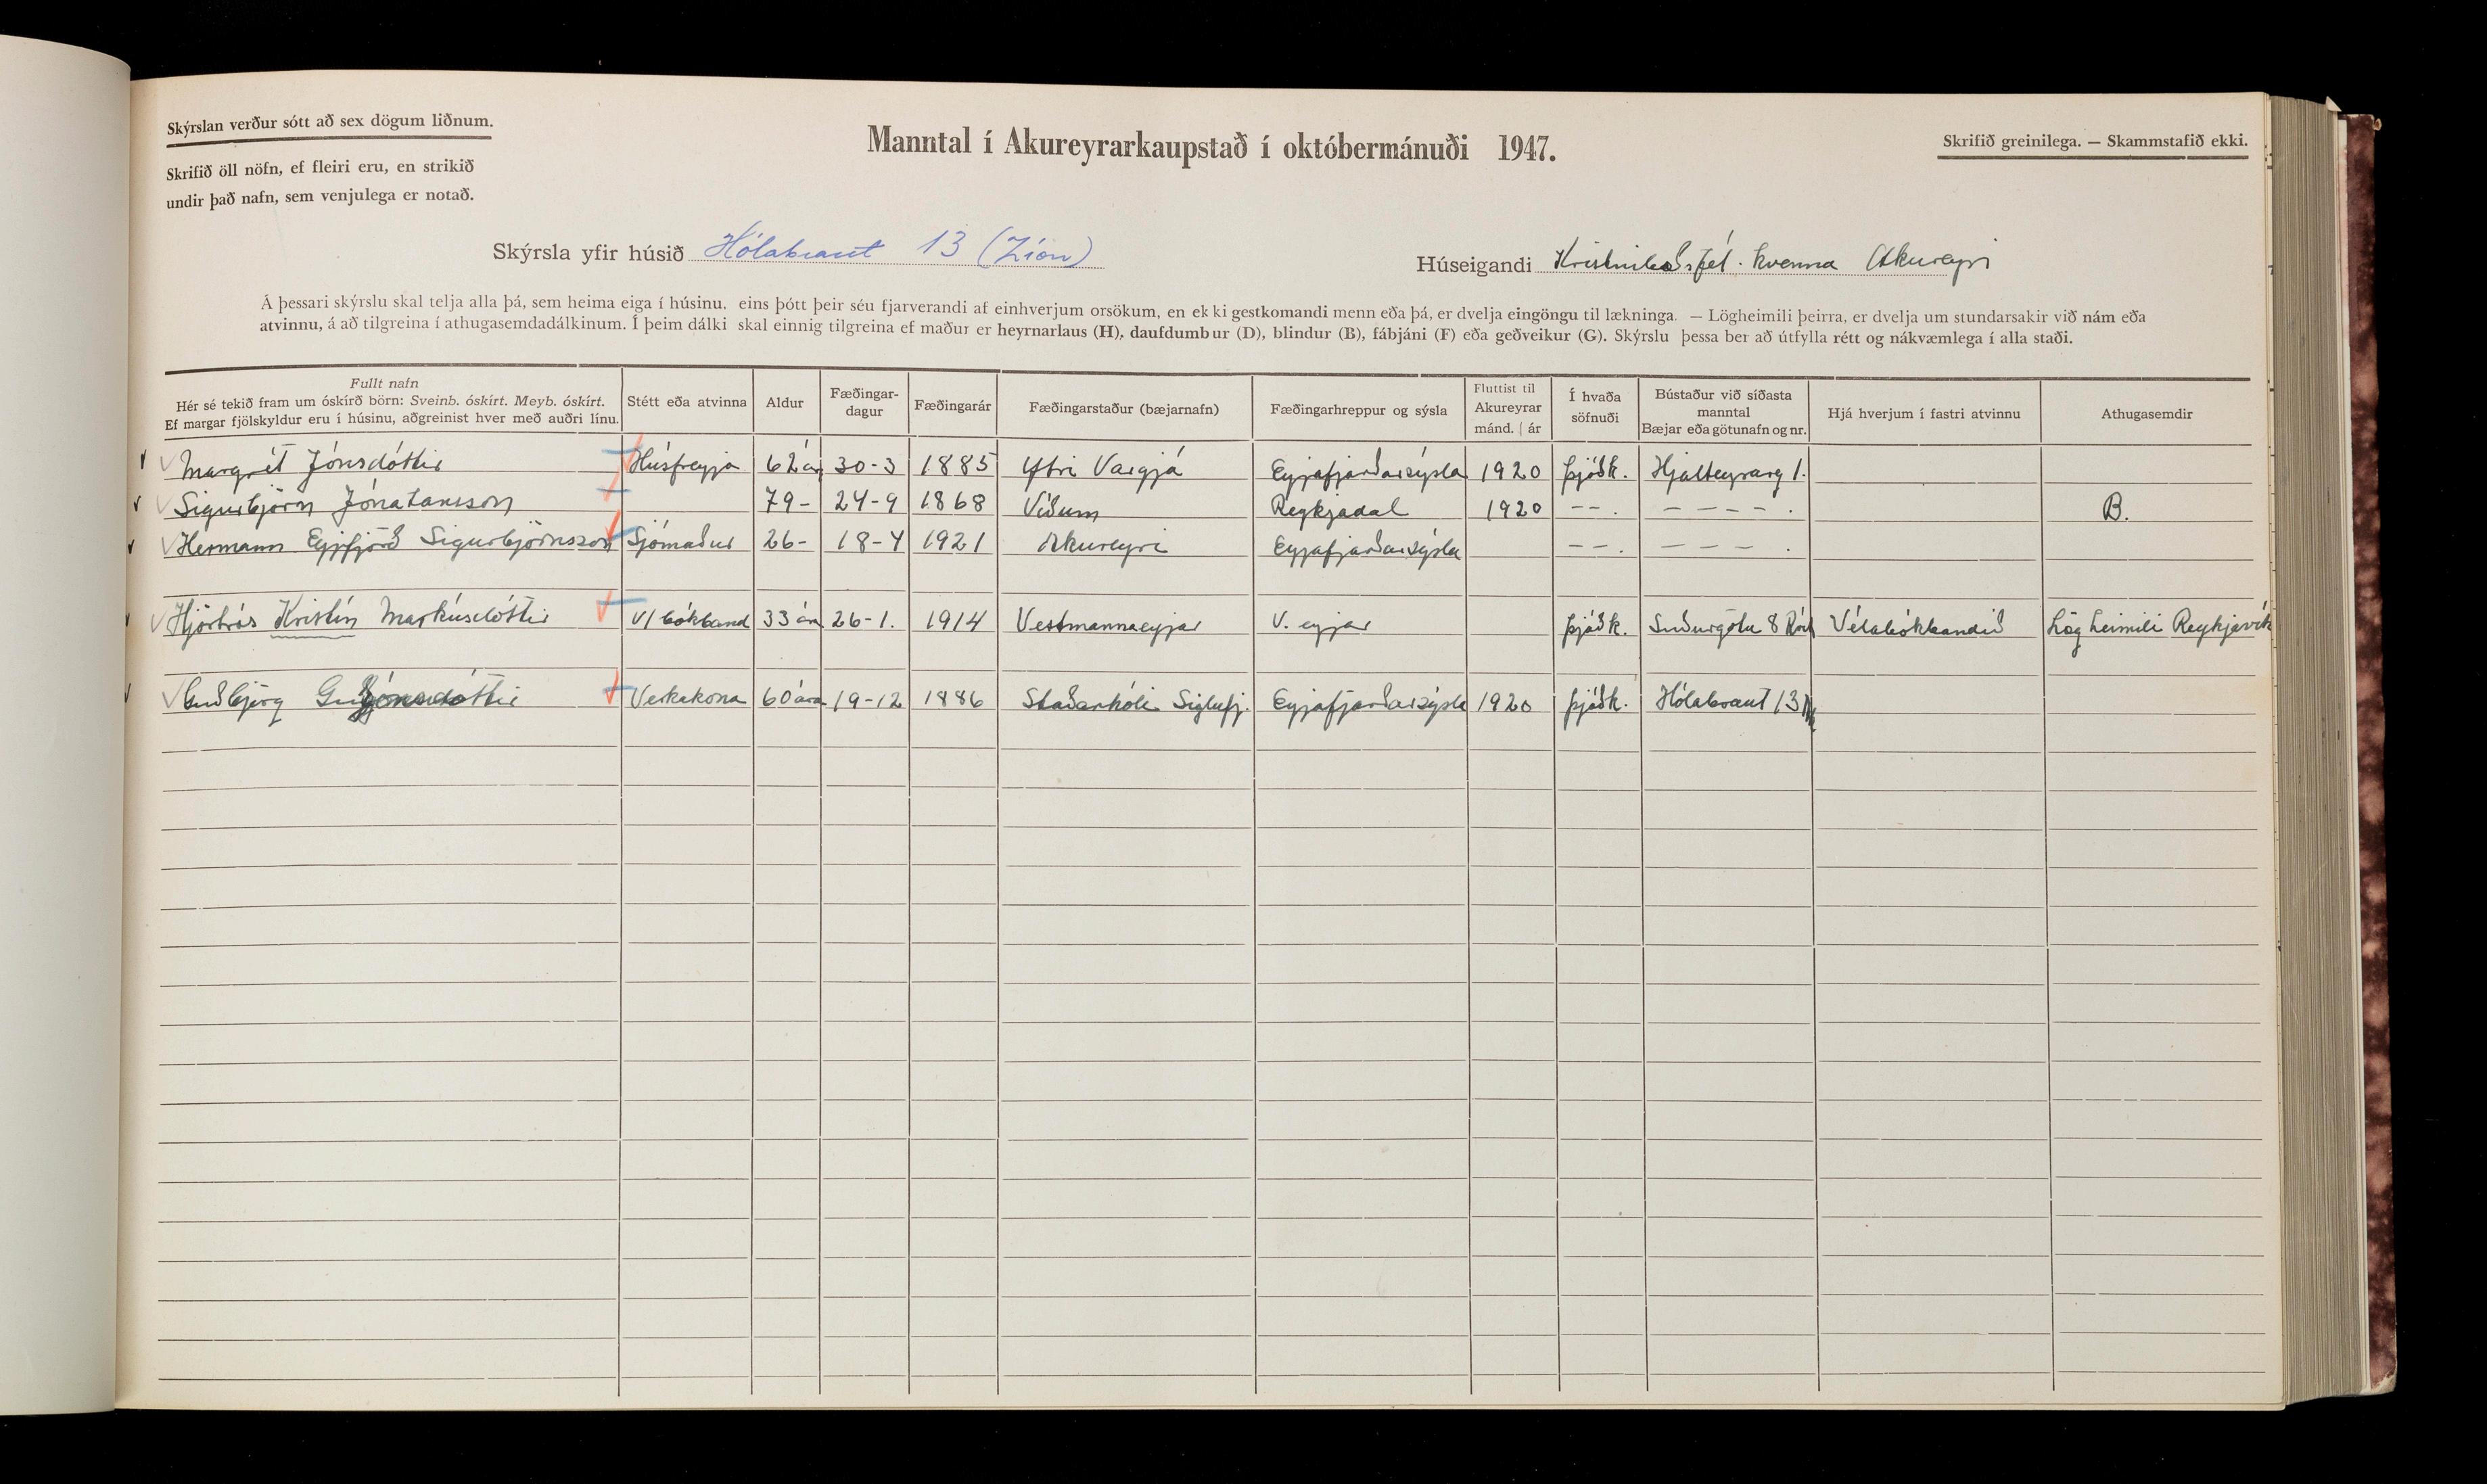 Skýrslan verður sótt að sex dögum liðnum.
Skrifið öll nöfn, ef fleiri eru, en strikið
undir það nafn, sem venjulega er notað.
Manntal í Akureyrarkaupstað í októbermánuði 1947.
Skrifið greinilega. — Skammstafið ekki.
Skýrsla yfir húsið Hólabraut 13 (Zíon)
Húseigandi Kristniboðsfél. kvenna Akureyri
Á þessari skýrslu skal telja alla þá, sem heima eiga í húsinu, eins þótt þeir séu fjarverandi af einhverjum orsökum, en ekki gestkomandi menn eða þá, er dvelja eingöngu til lækninga. — Lögheimili þeirra, er dvelja um stundarsakir við nám eða
atvinnu, á að tilgreina í athugasemdadálkinum. Í þeim dálki skal einnig tilgreina ef maður er heyrnarlaus (H), daufdumbur (D), blindur (B), fábjáni (F) eða geðveikur (G). Skýrslu þessa ber að útfylla rétt og nákvæmlega í alla staði.
Fullt nafn
Hér sé tekið fram um óskírð börn: Sveinb. óskírt. Meyb. óskírt.
Ef margar fjölskyldur eru í húsinu, aðgreinist hver með auðri línu.
Stétt eða atvinna
Aldur
Fæðingar-
dagur
Fæðingarár
Fæðingarstaður (bæjarnafn)
Fæðingarhreppur og sýsla
Fluttist til
Akureyrar
mánd. | ár
Í hvaða
söfnuði
Bústaður við síðasta
manntal
Bæjar eða götunafn og nr.
Hjá hverjum í fastri atvinnu
Athugasemdir
Margrét Jónsdóttir Húsfreyja 62 ár 30-3 1885 Ytri Vargjá Eyjafjarðarsýsla 1920 þjóðk. Hjalteyrarg 1.
Sigurbjörn Jónatansson 79- 24-9 1868 Víðum Reykjadal 1920 --. ----. B.
Hermann Eyjfjörð Sigurbjörnsson Sjómaður 26- 18-4 1921 Akureyri Eyjafjarðarsýsla --. ---.
Hjörtrós Kristín Markúsdóttir V/ bókband 33 ára 26-1. 1914 Vestmannaeyjar V. eyjar þjóðk. Suðurgötu 8 Vélabókbandið Lögheimili Reykjavík
Guðbjörg Verkakona 60 ára 19-12 1886 Staðarhóli Siglufj. Eyjafjarðarsýsla 1920 þjóðk. Hólabraut 13